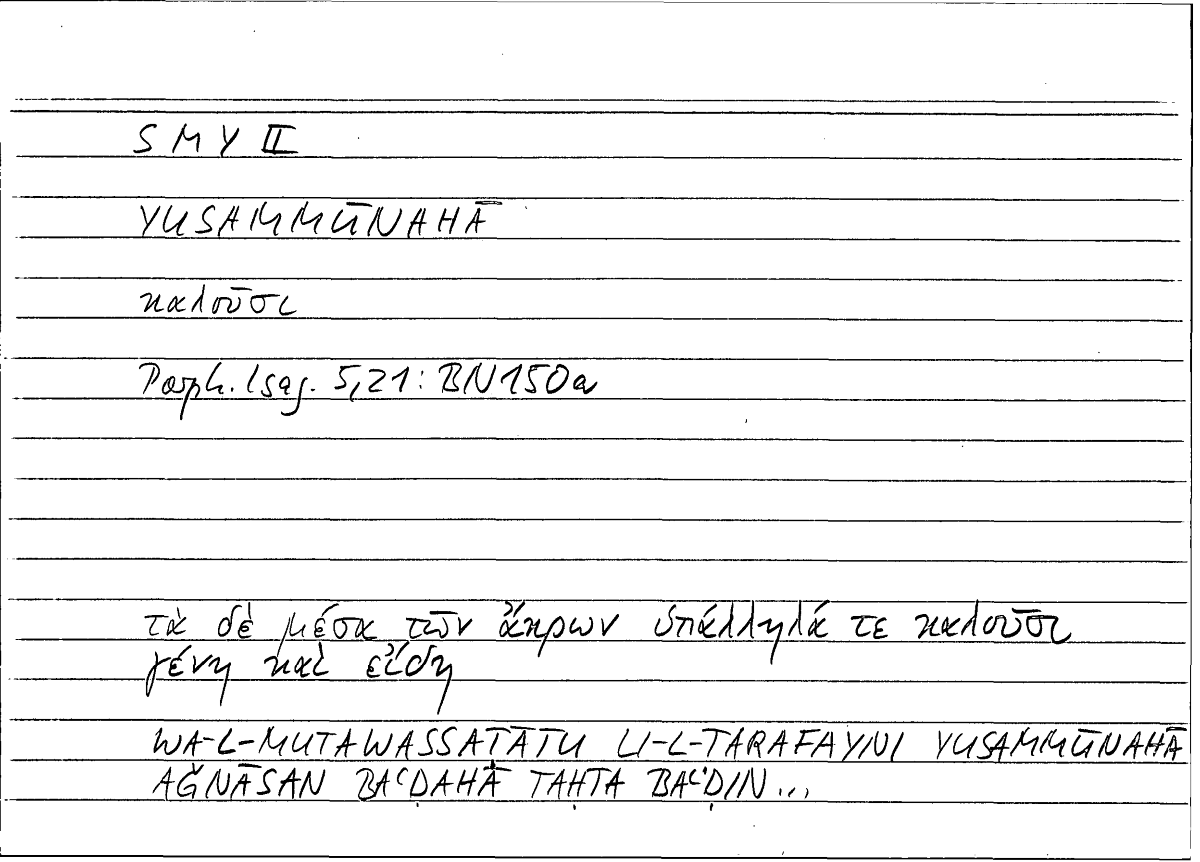 SMY II
YUSAMMŪNAHĀ
καλοῦσι
Porph. Isag. 5,21: BN 150a
τὰ δὲ μέσα τῶν ἄκρων ὑπάλληλά τε καλοῦσι
γένη καὶ εἴδη
WA-L-MUTAWASSAṬĀTU LI-L-ṬARAFAYNI YUSAMMŪNAHĀ
AǦNĀSAN BAʿḌAHĀ TAḤTA BAʿḌIN...